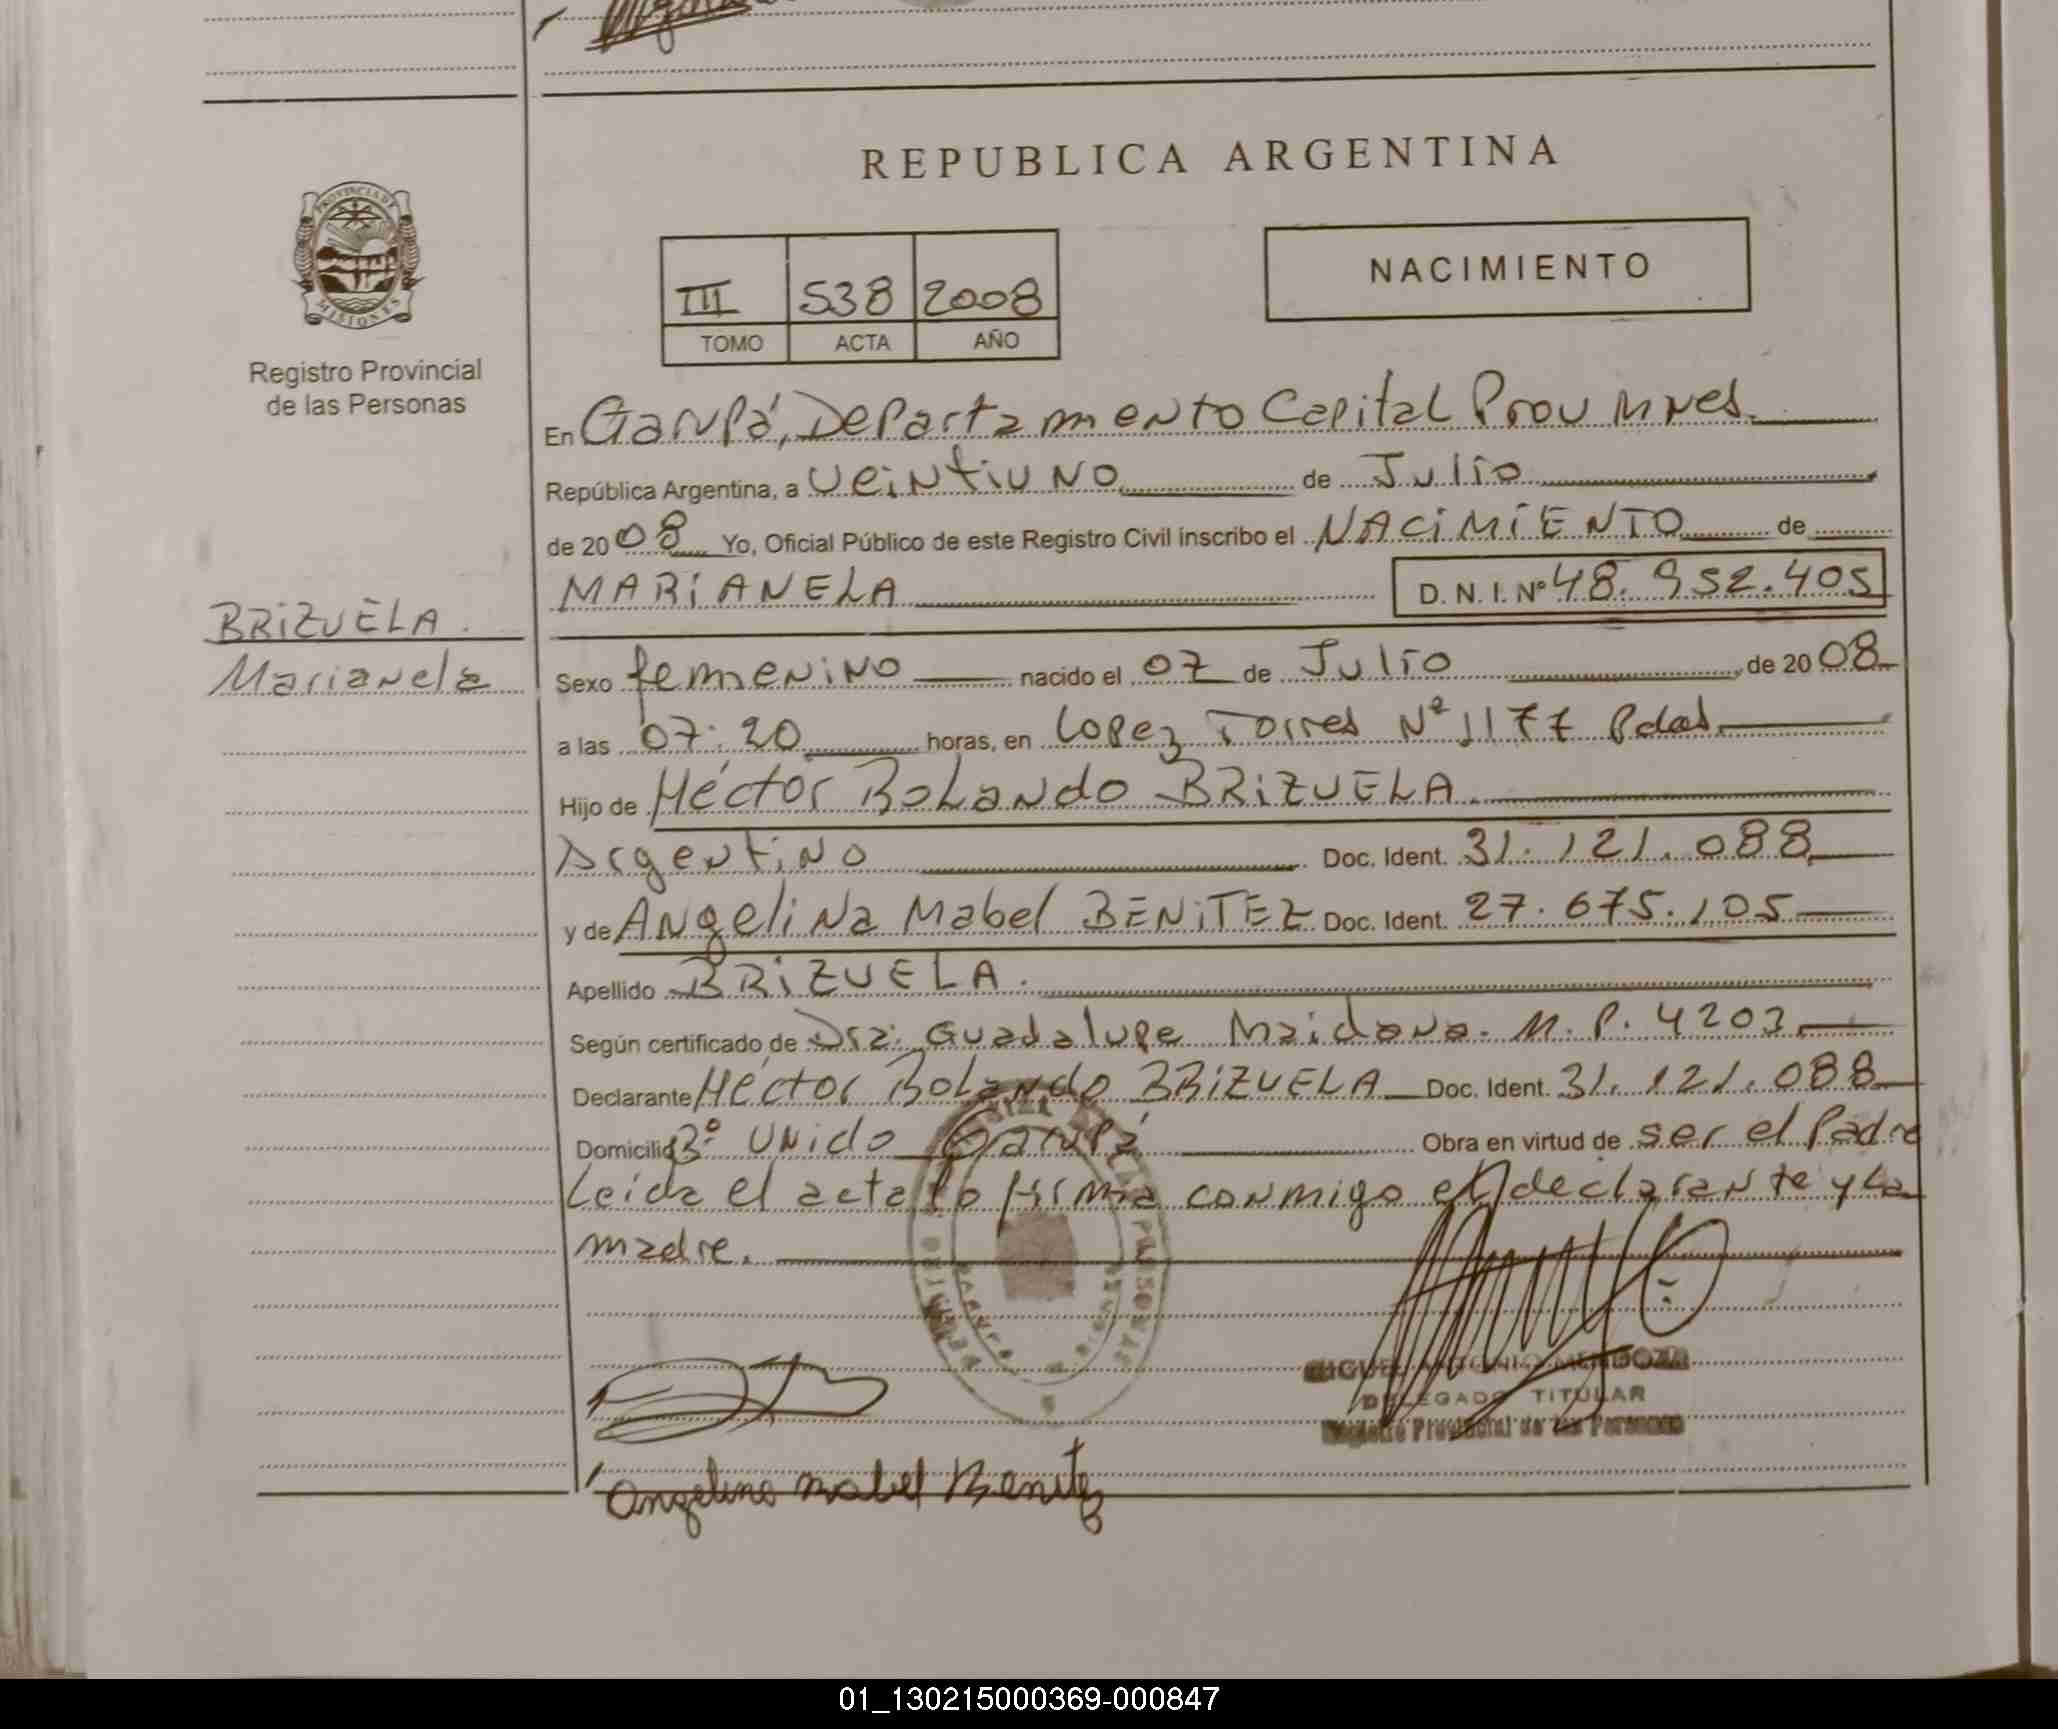 REPUBLICA ARGENTINA
PROVINCIA DE
MISIONES
Registro Provincial
de las Personas
III 538 2008
TOMO ACTA AÑO
NACIMIENTO
En Garupá, Departamento Capital Prov Mnes.
República Argentina, a veintiuno de Julio
de 2008 Yo, Oficial Público de este Registro Civil inscribo el NACIMIENTO de
MARIANELA D. N. I. Nº 48.952.405
BRIZUELA.
Marianela
Sexo femenino nacido el 07 de Julio de 2008
a las 07:20 horas, en Lopez Torres Nº 1177 Pdas.
Hijo de Héctor Rolando BRIZUELA
Argentino Doc. Ident. 31.121.088
y de Angelina Mabel BENITEZ Doc. Ident. 27.675.105
Apellido BRIZUELA.
Según certificado de Dra. Guadalupe Maidana. M.P. 4203
Declarante Héctor Rolando BRIZUELA Doc. Ident. 31.121.088
Domicilio Bº Unido Garupá Obra en virtud de ser el Padre
Leida el acta la firma conmigo el declarante y la
madre.
MIGUEL ANTONIO MENDOZA
DELEGADO TITULAR
Registro Provincial de las Personas
Angelina mabel Benitez
01_130215000369-000847